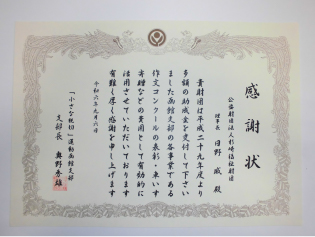 感謝状
公益財団法人杉﨑福祉財団
理事長 日野 威 殿
貴財団は平成二十九年度より
多額の助成金を交付して下さい
ました函館支部の各事業である
作文コンクールの表彰・車いす
寄贈などの費用として有効的に
活用させていただいております
有難く厚く感謝を申し上げます
令和六年九月六日
「小さな親切」運動函館支部
支部長 奥野 秀雄